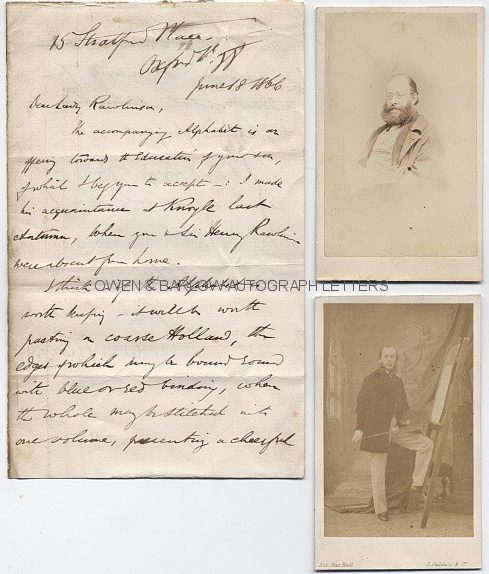 15 Stratford Place.
Oxford St.
June 18 1866
Dear Lady Rawlinson,
The accompanying Alphabet is an
offering towards the Education of your son,
of which I beg you to accept -: I made
his acquaintance at Knoyle last
Autumn, when you & Sir Henry Rawlinson
were absent from home.
I think if the Alphabet
worth keeping - it will be worth
pasting on coarse Holland, the
edges of which may be bound round
with blue or red binding, when
the whole may be stitched into
one volume, presenting a cheerful
© OWEN & BARLOW AUTOGRAPH LETTERS